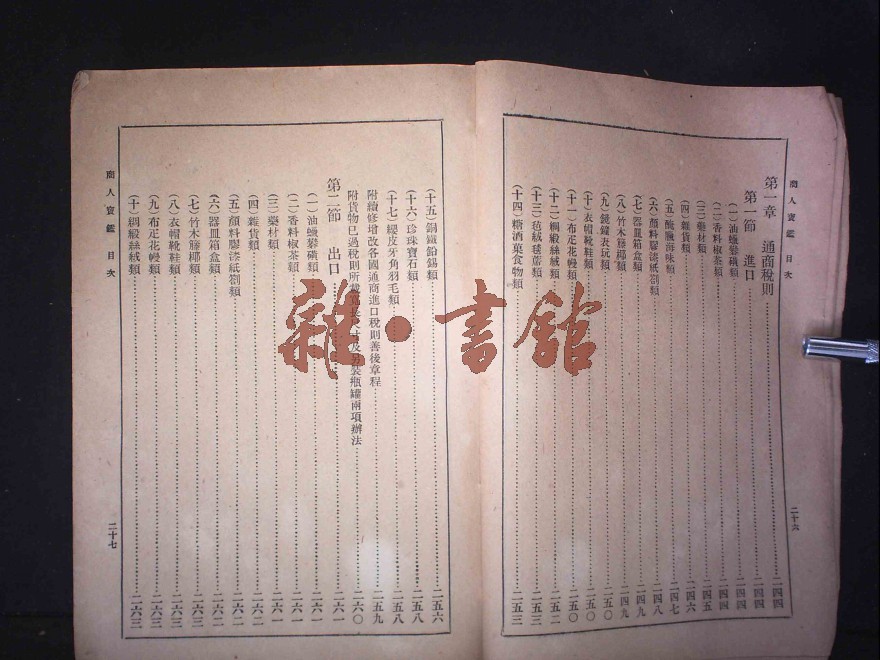 商人寶鑑 目次
二十六
第一章 通商稅則……二四四
第一節 進口……二四四
(一)油蠟礬磺類……二四四
(二)香料椒茶類……二四四
(三)藥材類……二四五
(四)雜貨類……二四六
(五)醃臘海味類……二四七
(六)顏料膠漆紙劄類……二四八
(七)器皿箱盒類……二四九
(八)竹木籐椰類……二四九
(九)鏡鐘表玩類……二五〇
(十)衣帽靴鞋類……二五〇
(十一)布疋花幔類……二五〇
(十二)綢緞絲絨類……二五二
(十三)氈絨毯蓆類……二五三
(十四)糖酒菓食物類……二五三
(十五)銅鐵鉛錫類……二五六
(十六)珍珠寶石類……二五八
(十七)纓皮牙角羽毛類……二五八
附續修增改各國通商進口稅則善後章程……二五九
附貨物已過稅則所載寬長尺寸及另裝瓶罐兩項辦法……二六〇
第二節 出口……二六一
(一)油蠟礬磺類……二六一
(二)香料椒茶類……二六一
(三)藥材類……二六一
(四)雜貨類……二六二
(五)顏料膠漆紙劄類……二六二
(六)器皿箱盒類……二六二
(七)竹木籐椰類……二六三
(八)衣帽靴鞋類……二六三
(九)布疋花幔類……二六三
(十)綢緞絲絨類……二六三
商人寶鑑 目次
二十七
雜·書館